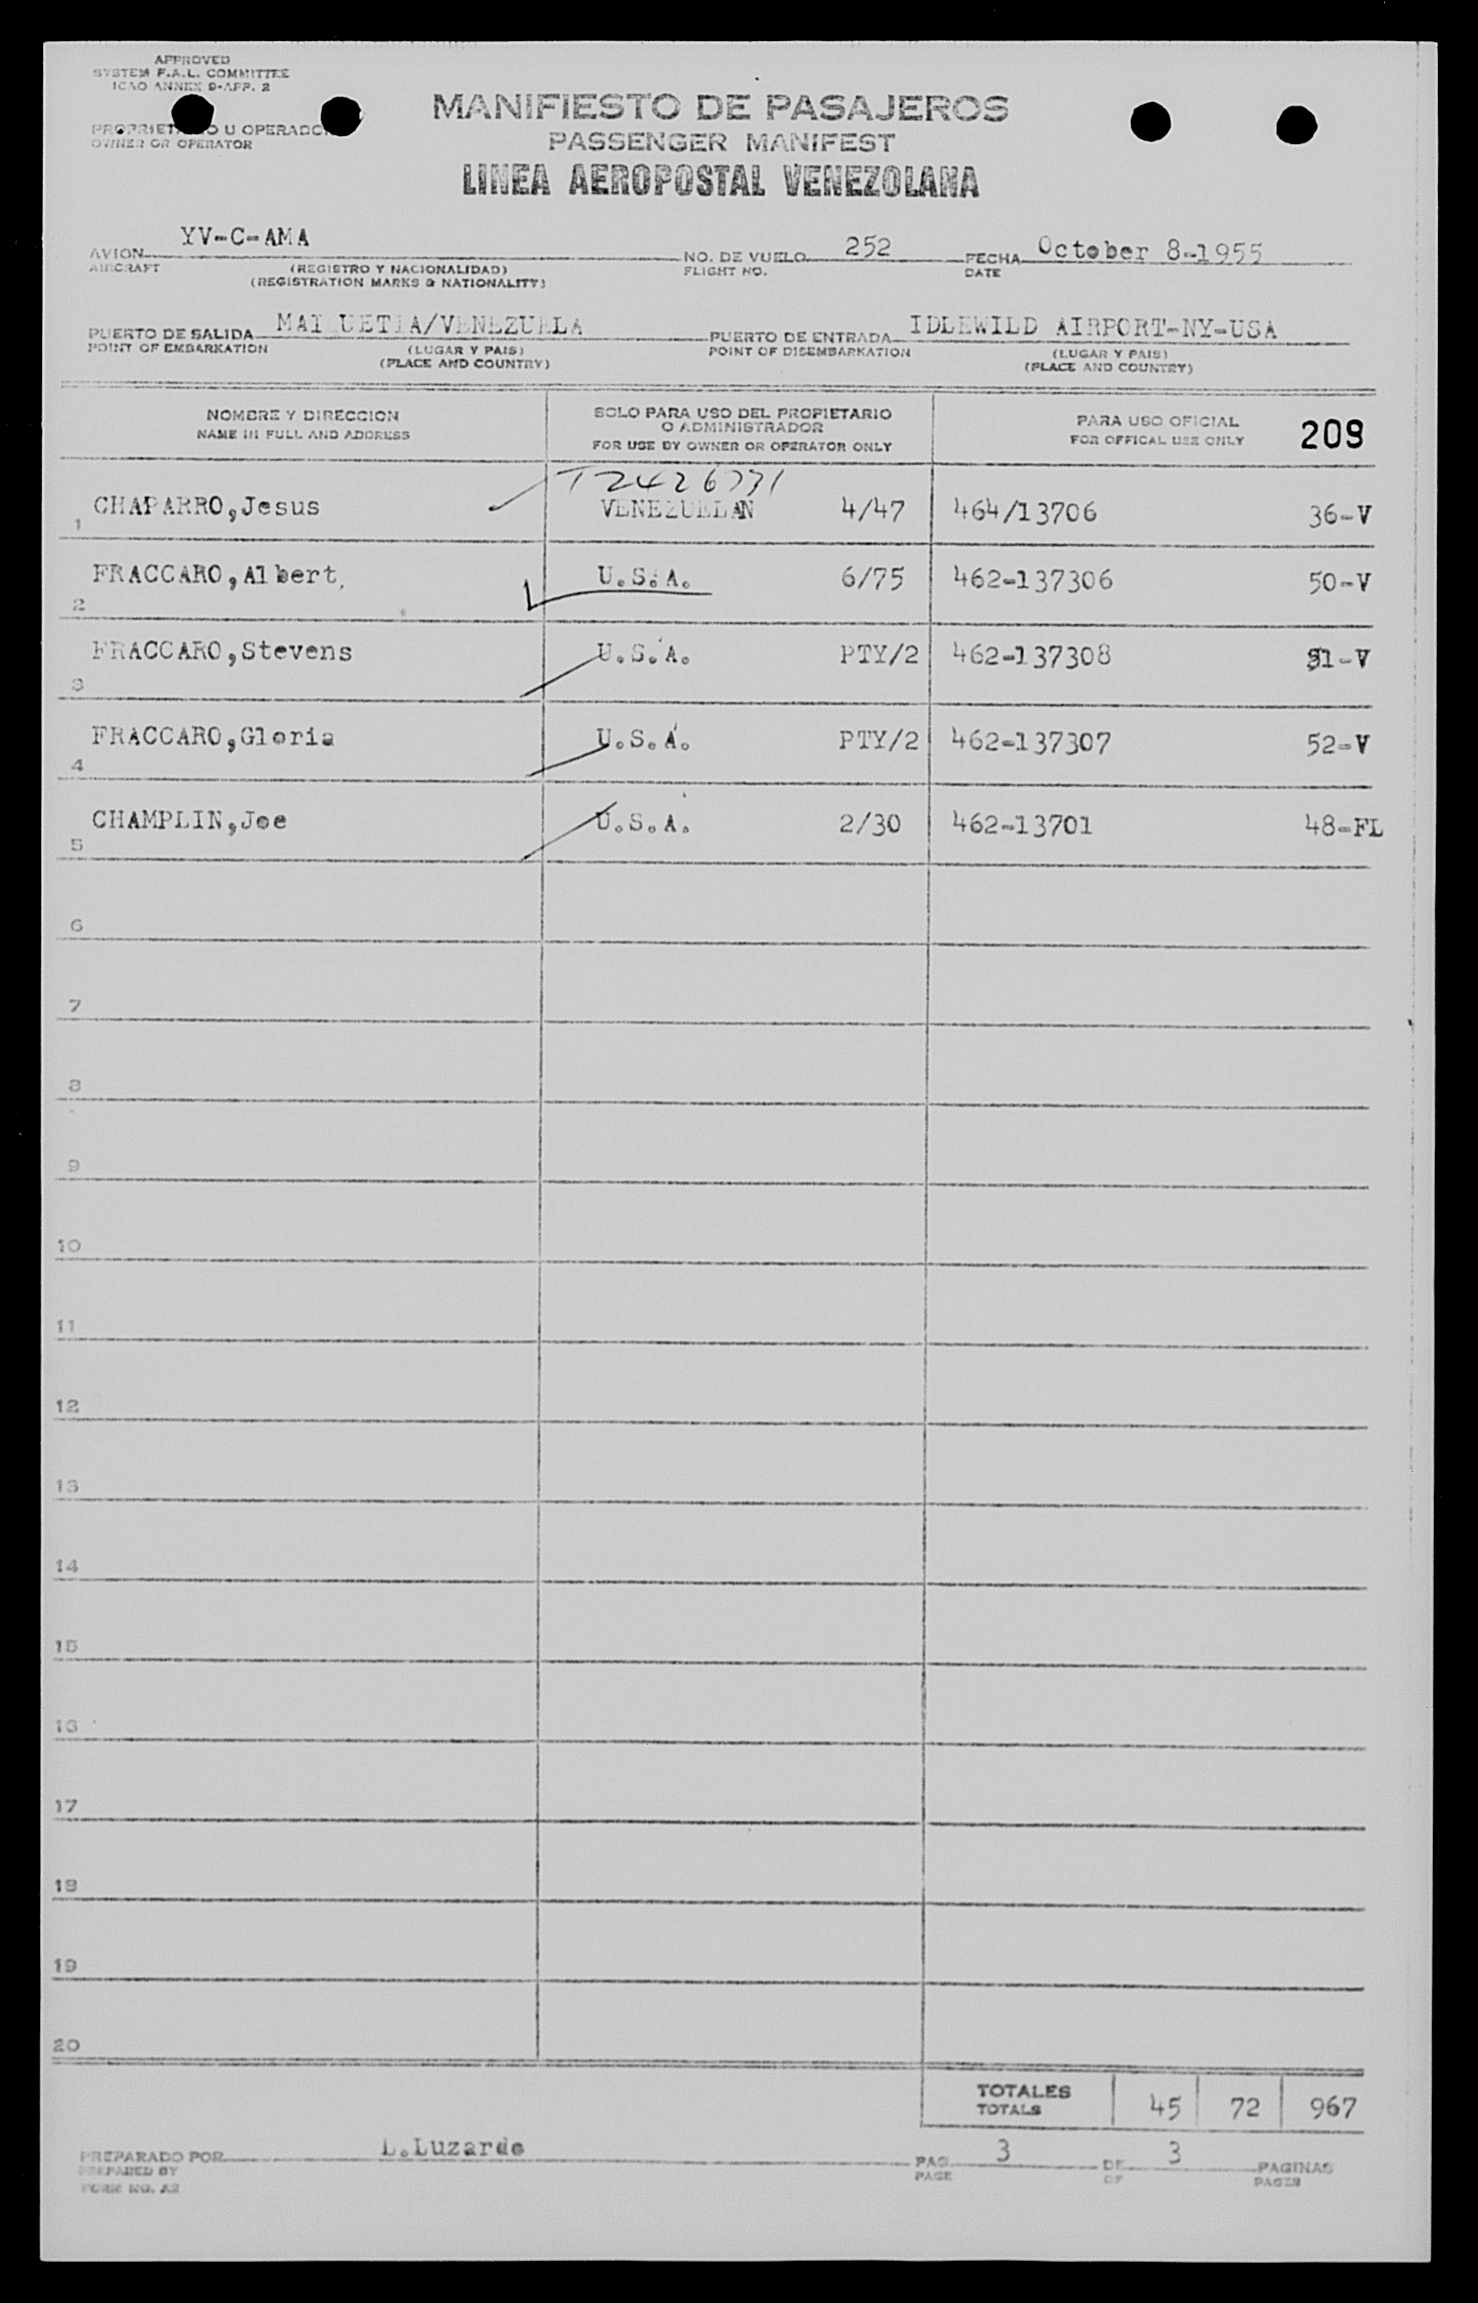 APPROVED
SYSTEM F.A.L. COMMITTEE
ICAO ANNEX 9-APP. 2
MANIFIESTO DE PASAJEROS
PROPRIET O U OPERADOR
OWNER OR OPERATOR
PASSENGER MANIFEST
LINEA AEROPOSTAL VENEZOLANA
AVION YV-C-AMA NO. DE VUELO 252 FECHA October 8-1955
AIRCRAFT (REGISTRO Y NACIONALIDAD) FLIGHT NO. DATE
(REGISTRATION MARKS & NATIONALITY)
PUERTO DE SALIDA MAI UETIA/VENEZUELA PUERTO DE ENTRADA IDLEWILD AIRPORT-NY-USA
POINT OF EMBARKATION (LUGAR Y PAIS) POINT OF DISEMBARKATION (LUGAR Y PAIS)
(PLACE AND COUNTRY) (PLACE AND COUNTRY)
NOMBRE Y DIRECCION SOLO PARA USO DEL PROPIETARIO PARA USO OFICIAL
O ADMINISTRADOR
NAME IN FULL AND ADDRESS FOR USE BY OWNER OR OPERATOR ONLY FOR OFFICAL USE ONLY 209
T2426771
1 CHAPARRO,Jesus VENEZUELAN 4/47 464/13706 36-V
2 FRACCARO,Albert, U.S.A. 6/75 462-137306 50-V
3 FRACCARO,Stevens U.S.A. PTY/2 462-137308 51-V
4 FRACCARO,Gloria U.S.A. PTY/2 462-137307 52-V
5 CHAMPLIN,Joe U.S.A. 2/30 462-13701 48-FL
6
7
8
9
10
11
12
13
14
15
16
17
18
19
20
TOTALES 45 72 967
TOTALS
PREPARADO POR L.Luzardo PAG. 3 DE 3 PAGINAS
PREPARED BY PAGE OF PAGES
FORM NO. A2